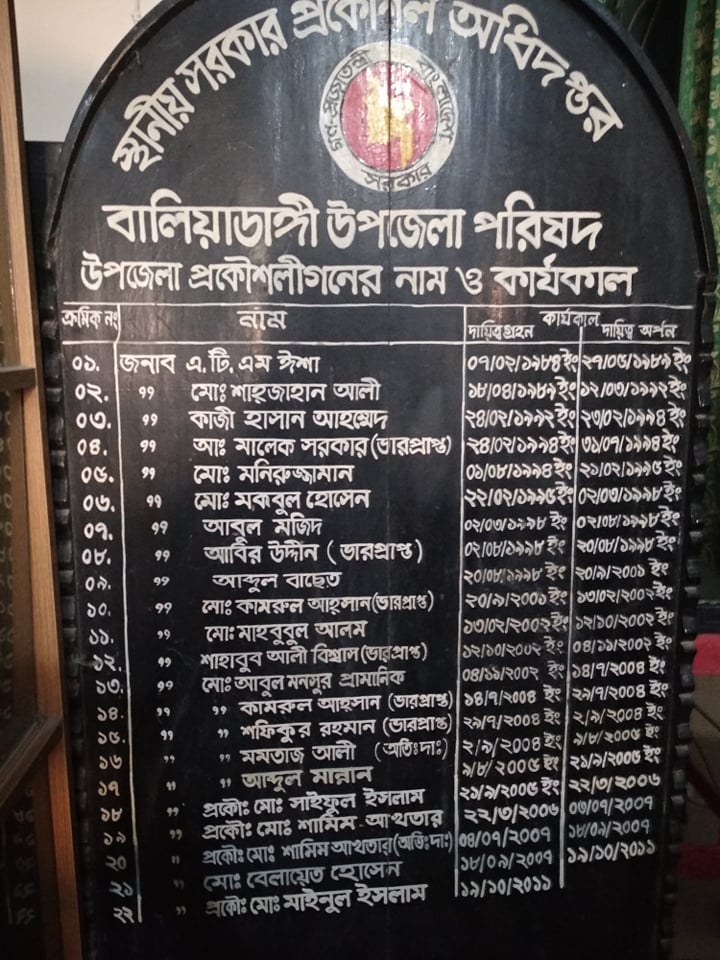 স্থানীয় সরকার প্রকৌশল অধিদপ্তর
গণপ্রজাতন্ত্রী বাংলাদেশ
সরকার
বালিয়াডাঙ্গী উপজেলা পরিষদ
উপজেলা প্রকৌশলীগনের নাম ও কার্যকাল
ক্রমিক নং নাম কার্যকাল
দায়িত্বগ্রহন দায়িত্ব অর্পন
০১. জনাব এ.টি.এম ঈশা ০৭/০২/১৯৮৪ইং ২৭/০৫/১৯৮৯ইং
০২. " মোঃ শাহ্জাহান আলী ১৮/০৪/১৯৮৯ইং ১২/০৩/১৯৯২ইং
০৩. " কাজী হাসান আহম্মেদ ২৪/০২/১৯৯২ইং ২৩/০২/১৯৯৪ইং
০৪. " আঃ মালেক সরকার (ভারপ্রাপ্ত) ২৪/০২/১৯৯৪ইং ৩১/০৭/১৯৯৪ইং
০৫. " মোঃ মনিরুজ্জামান ০১/০৮/১৯৯৪ইং ২১/০২/১৯৯৫ইং
০৬. " মোঃ মকবুল হোসেন ২২/০২/১৯৯৫ইং ০২/০৩/১৯৯৮ইং
০৭. " আবুল মজিদ ০২/০৩/১৯৯৮ইং ০২/০৮/১৯৯৮ইং
০৮. " আবির উদ্দীন (ভারপ্রাপ্ত) ০২/০৮/১৯৯৮ইং ২০/০৮/১৯৯৮ইং
০৯. " আব্দুল বাছেত ২০/০৮/১৯৯৮ইং ২০/৯/২০০১ইং
১০. " মোঃ কামরুল আহ্সান (ভারপ্রাপ্ত) ২০/৯/২০০১ইং ১৩/০২/২০০২ইং
১১. " মোঃ মাহবুবুল আলম ১৩/০২/২০০২ইং ১২/১০/২০০২ইং
১২. " শাহাবুব আলী বিশ্বাস (ভারপ্রাপ্ত) ১২/১০/২০০২ইং ০৪/১১/২০০২ইং
১৩. " মোঃ আবুল মনসুর প্রামানিক ০৪/১১/২০০২ইং ১৪/৭/২০০৪ইং
১৪. " " কামরুল আহসান (ভারপ্রাপ্ত) ১৪/৭/২০০৪ইং ২৯/৭/২০০৪ইং
১৫. " " শফিকুর রহমান (ভারপ্রাপ্ত) ২৯/৭/২০০৪ইং ২/৯/২০০৪ইং
১৬ " " মমতাজ আলী (অতিঃদাঃ) ২/৯/২০০৪ইং ৯/৮/২০০৫ইং
১৭ " " আব্দুল মান্নান ৯/৮/২০০৫ইং ২১/৯/২০০৫ইং
১৮ " প্রকৌঃ মোঃ সাইফুল ইসলাম ২১/৯/২০০৫ইং ২২/৩/২০০৬
১৯ " প্রকৌঃ মোঃ শামিম আখতার ২২/৩/২০০৬ ০৩/০৭/২০০৭
২০ " প্রকৌঃ মোঃ শামিম আখতার (অতিঃদাঃ) ০৪/০৭/২০০৭ ১৮/০৯/২০০৭
২১ " মোঃ বেলায়েত হোসেন ১৮/০৯/২০০৭ ১৯/১০/২০১১
২২ " প্রকৌঃ মোঃ মাইনুল ইসলাম ১৯/১০/২০১১